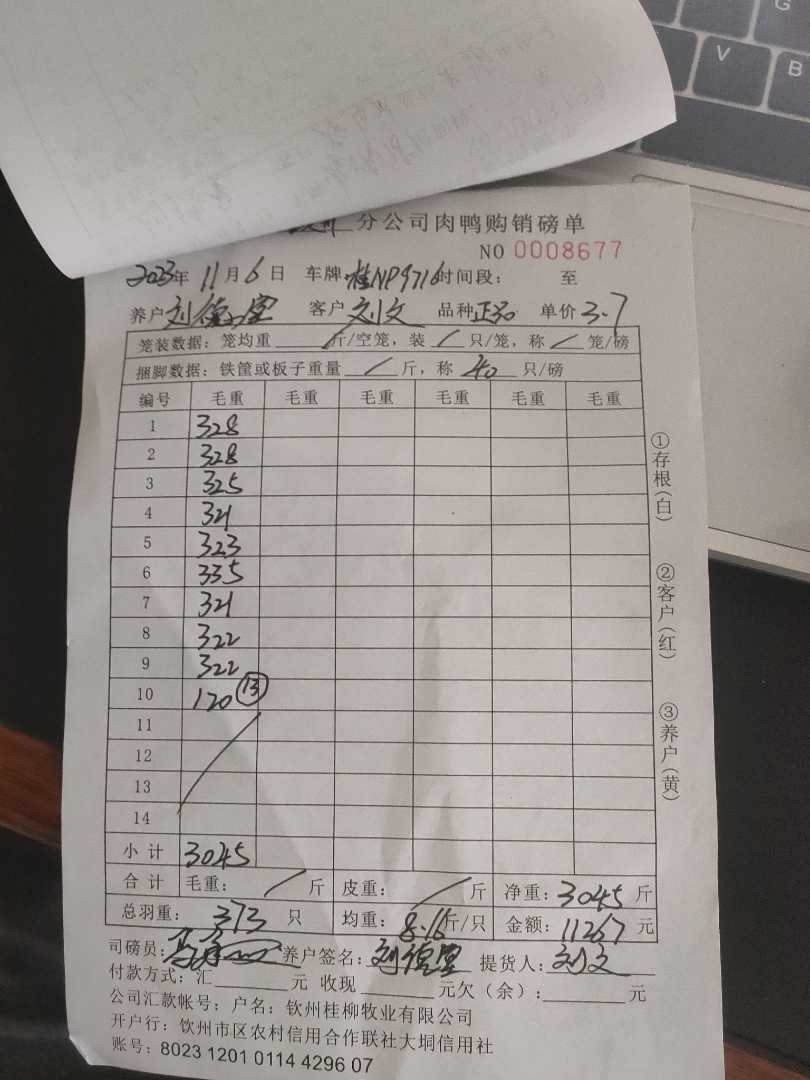 分公司肉鸭购销磅单
NO 0008677
2023年 11月6日 车牌 桂NP9716 时间段: 至
养户 刘德 客户 刘文 品种 正品 单价 3.7
笼装数据: 笼均重 / 斤/空笼, 装 / 只/笼, 称 / 笼/磅
捆脚数据: 铁筐或板子重量 / 斤, 称 40 只/磅
编号 毛重 毛重 毛重 毛重 毛重 毛重
1 328
2 328
3 325
4 321
5 323
6 335
7 321
8 322
9 322
10 120 13
11
12
13
14
小计 3045
合计 毛重: / 斤 皮重: / 斤 净重: 3045 斤
总羽重: 373 只 均重: 8.16 斤/只 金额: 11267 元
司磅员: 养户签名: 刘德 提货人: 刘文
付款方式: 汇 元 收现 元欠(余): 元
公司汇款帐号: 户名: 钦州桂柳牧业有限公司
开户行: 钦州市区农村信用合作联社大垌信用社
账号: 8023 1201 0114 4296 07
①存根(白)
②客户(红)
③养户(黄)
V
B
G